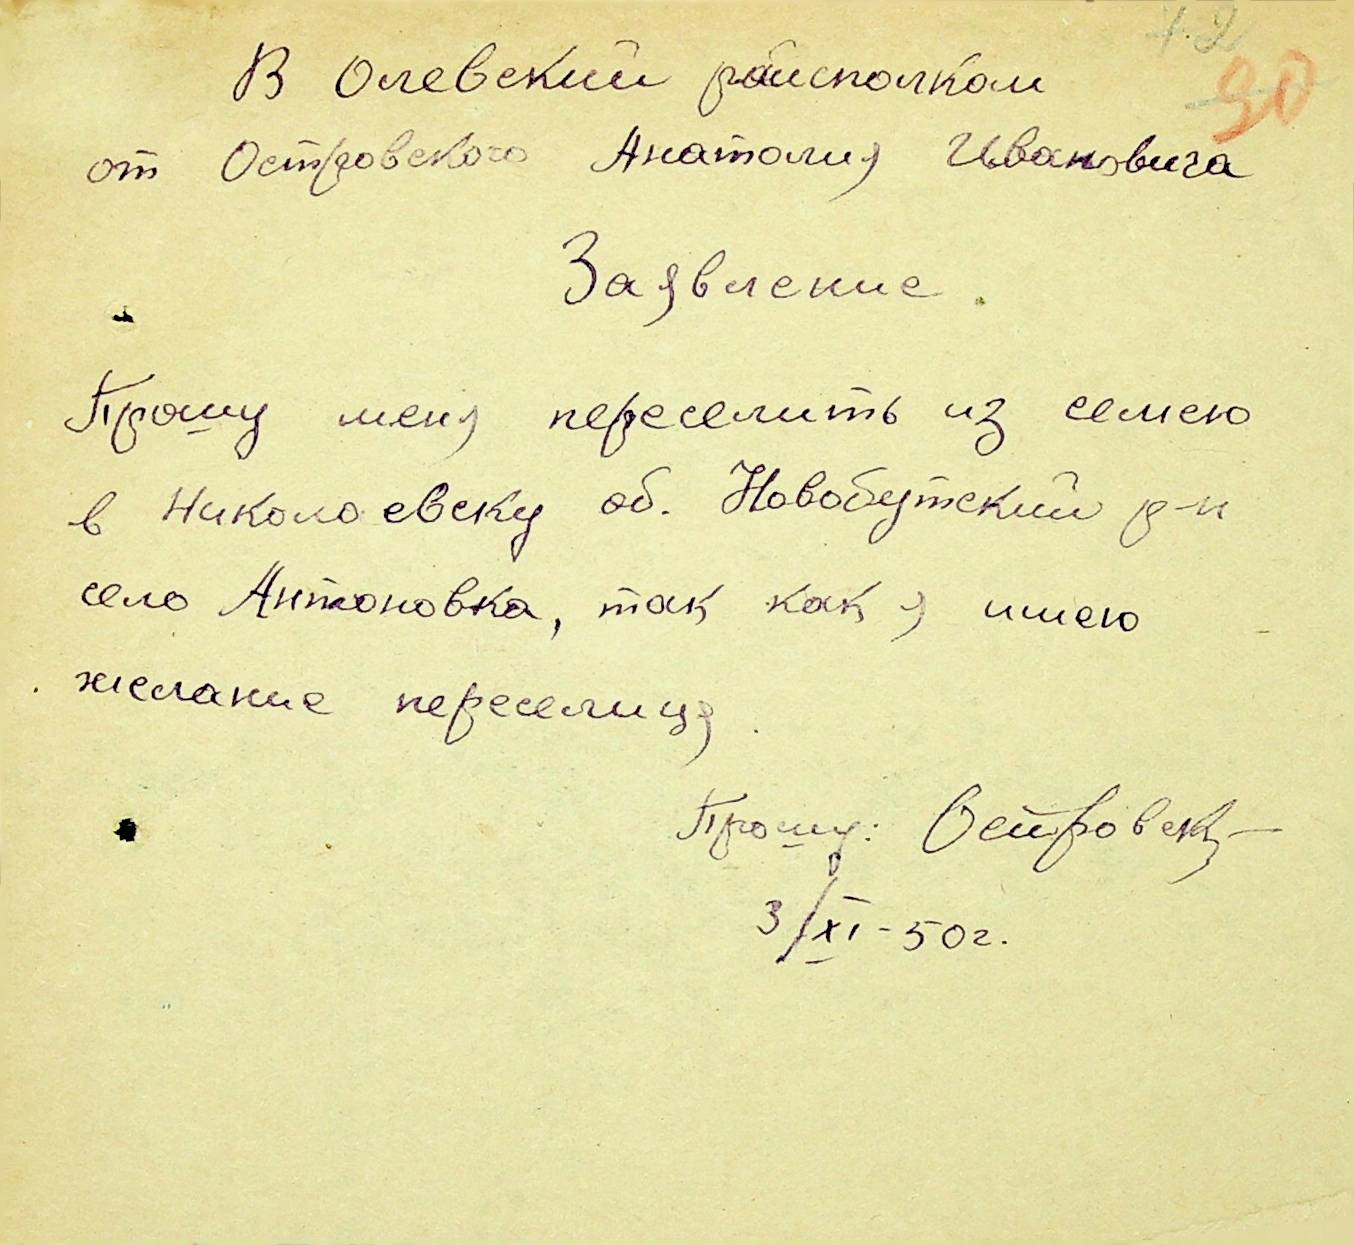 42
90
В Олевский райисполком
от Островского Анатолия Ивановича
Заявление.
Прошу меня переселить из семею
в Николоевску об. Новобутский р-н
село Антоновка, так как я имею
желание переселиця.
Прошу: Островск
3/XI-50г.